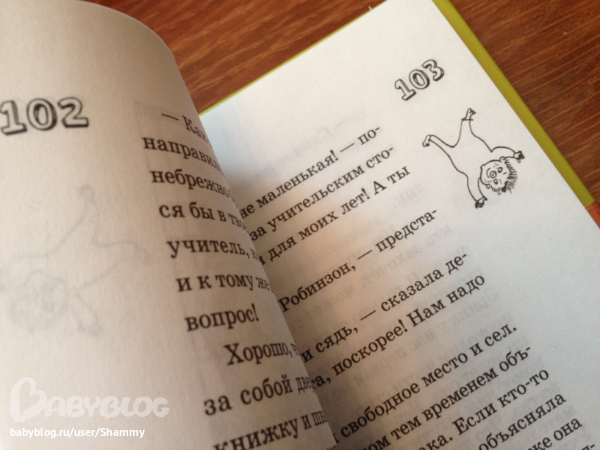 102
— Ка
направи
небрежно
ся бы в тв
учитель,
и к тому же
вопрос!
Хорошо,
за собой две
книжку и
103
не маленькая! — по-
за учительским сто-
для моих лет! А ты
Робинзон, — предста-
и сядь, — сказала де-
поскорее! Нам надо
свободное место и сел.
ом тем временем объ-
ака. Если кто-то
объясняла
же она
BABYBLOG
babyblog.ru/user/Shammy